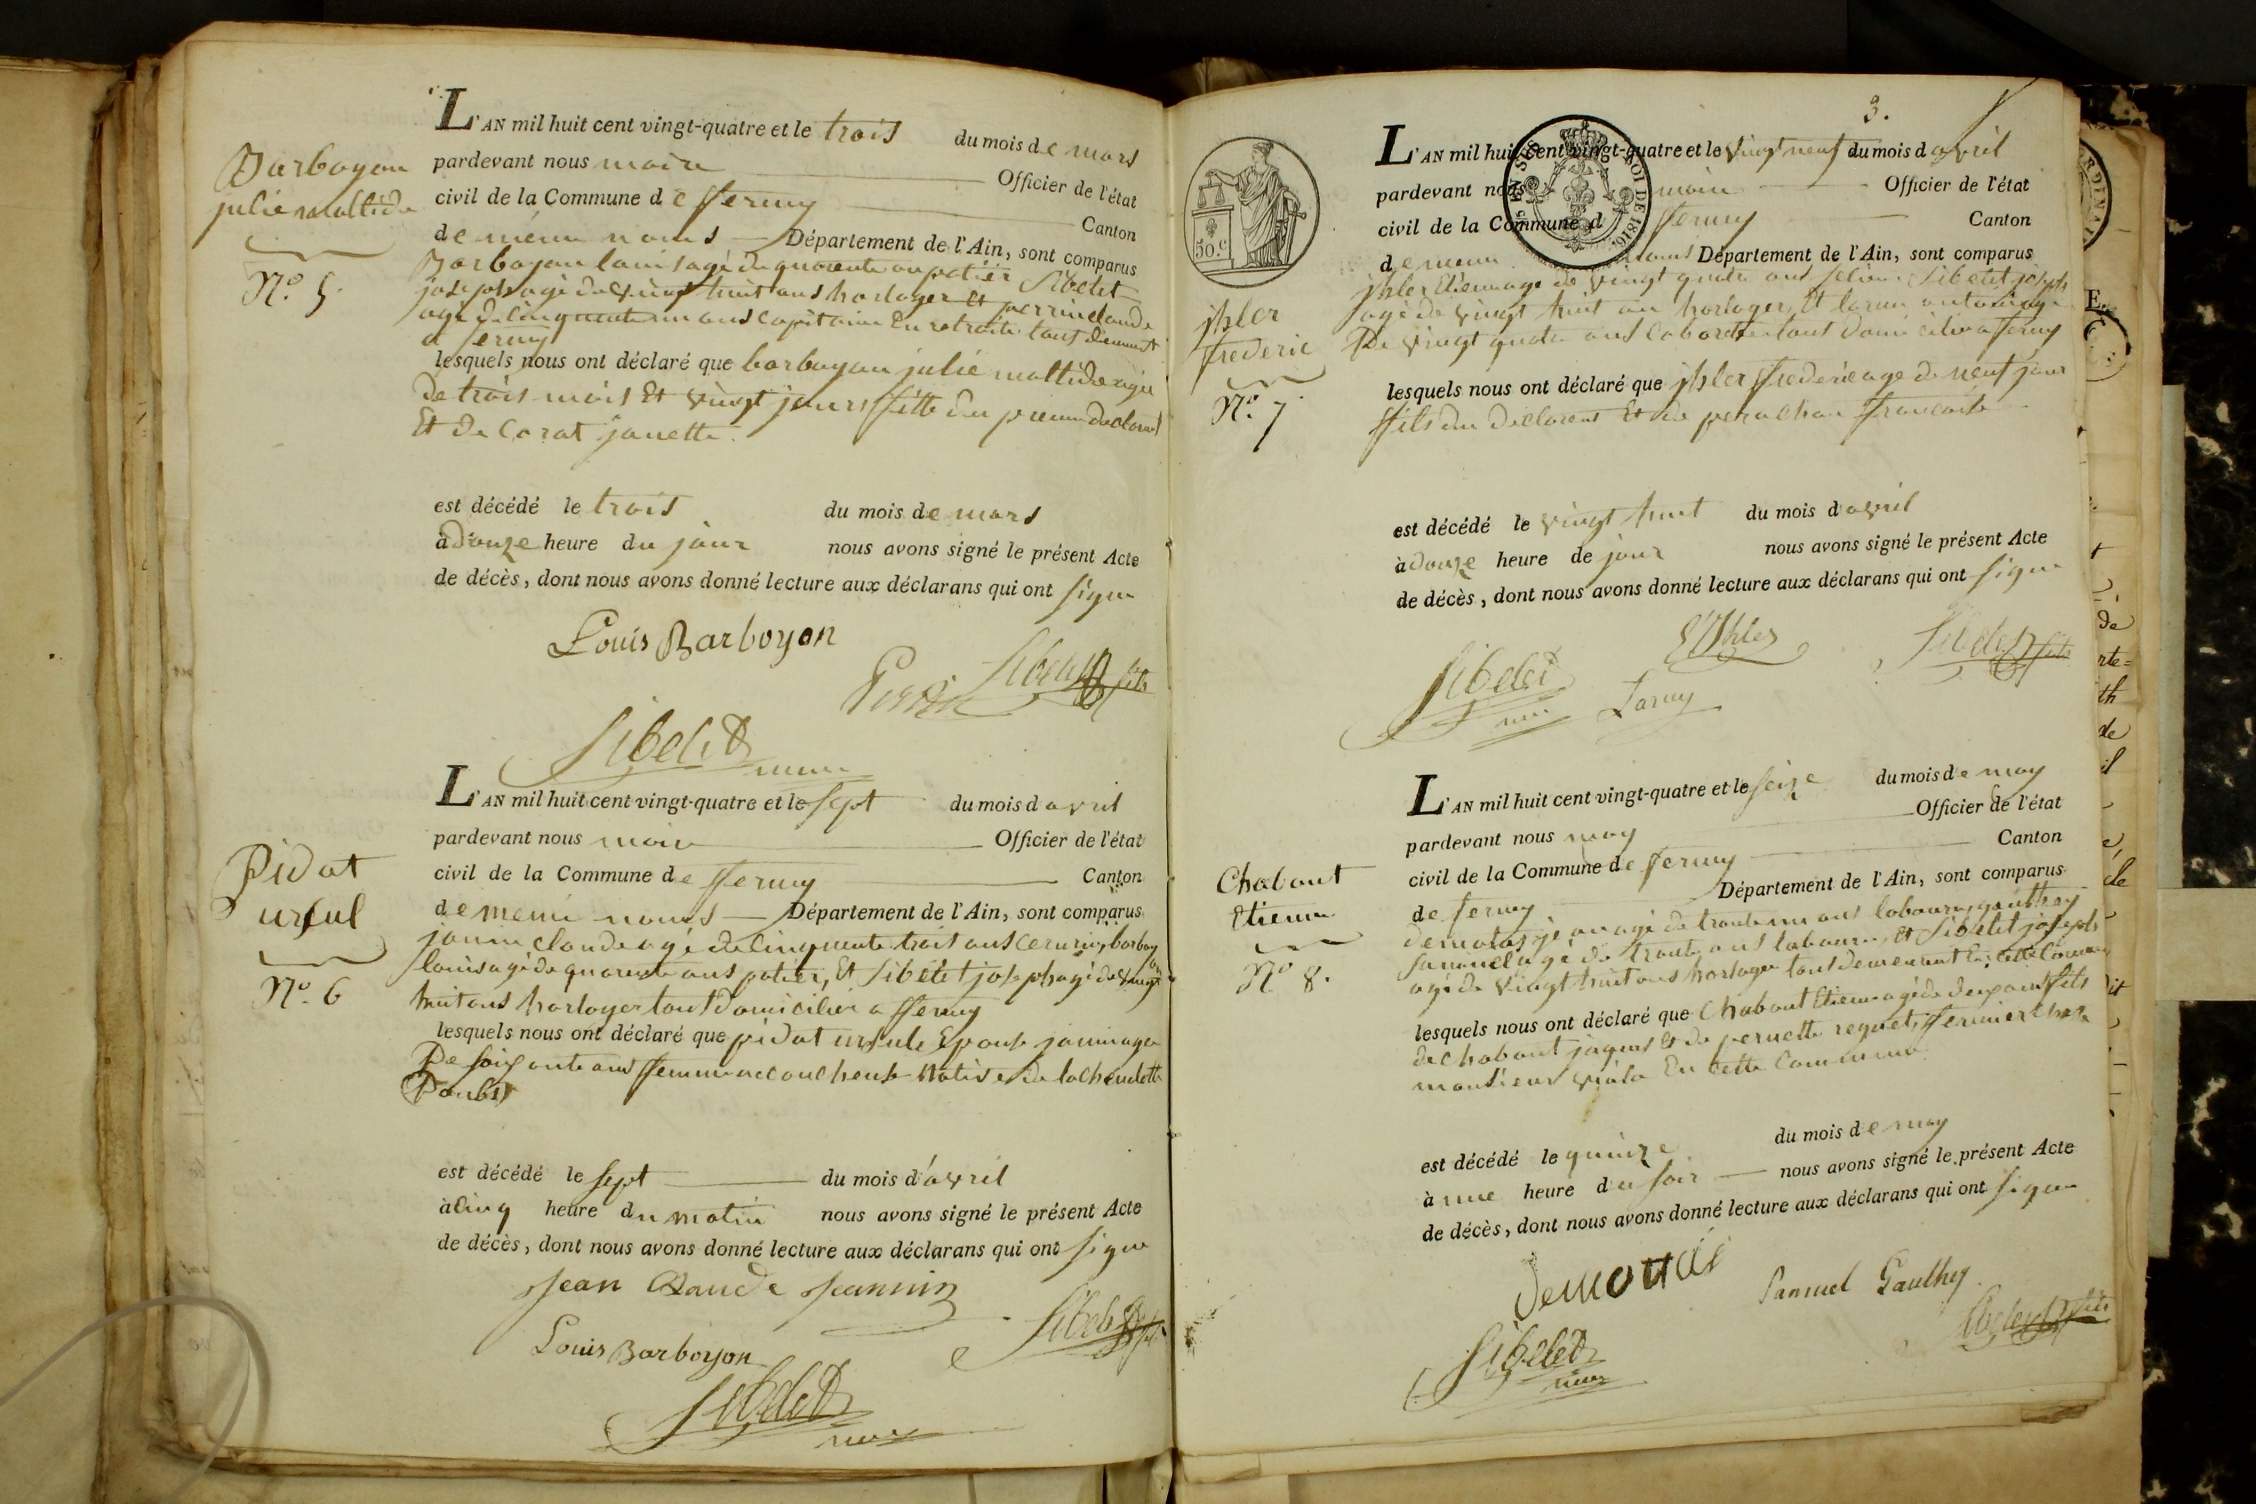 Barboyon
julie maltide
N.º 5.
L'AN mil huit cent vingt-quatre et le trois du mois de mars
pardevant nous maire Officier de l'état
civil de la Commune de fferney Canton
de meme noms Département de l'Ain, sont comparus
Barboyon louis agé de quarente ans potier Sibelet
joseph agé de vingt huit ans horloger Et perrin claude
agé de cinquante un ans capitaine En retraite tous
a ferney
lesquels nous ont déclaré que barboyon julie maltide agée
De trois mois Et vingt jours fille du premier declarant
Et de Corat janette.
est décédé le trois du mois de mars
à douze heure du jour nous avons signé le présent Acte
de décès, dont nous avons donné lecture aux déclarans qui ont signé
Louis Barboyon
Perrin Sibelet fils
Sibelet
maire
Pidot
ursul
N.º 6
L'AN mil huit cent vingt-quatre et le sept du mois d avril
pardevant nous maire Officier de l'état
civil de la Commune de fferney Canton
de meme noms Département de l'Ain, sont comparus
janin claude agé de cinquente trois ans, barboyon
louis agé de quarente ans potier, Et Sibelet joseph agé de vingt
huit ans horloger tous domicilié a fferney
lesquels nous ont déclaré que pidot ursule Epouse janin agée
De soixante ans femme accoucheuse Native de lachaudette
Doubs
est décédé le sept du mois d'avril
à cinq heure du matin nous avons signé le présent Acte
de décès, dont nous avons donné lecture aux déclarans qui ont signé
Jean Claude Jeannin
Louis Barboyon Sibelet fils
Sibelet
maire
3.
50.C
jhler
frederic
N.º 7
L'AN mil huit cent vingt-quatre et le vingt neuf du mois d avril
pardevant nous maire Officier de l'état
civil de la Commune d fferney Canton
de meme noms Département de l'Ain, sont comparus
jhler Etienne agé de vingt quatre ans, Sibelet joseph
agé de vingt huit an horloger, Et larny antoine agé
De vingt quatre ans tous domicilié a ferney
lesquels nous ont déclaré que jhler frederic age de neuf jour
ffils du declarant Et de perrachon francoise
est décédé le vingt huit du mois d'avril
à douze heure de jour nous avons signé le présent Acte
de décès, dont nous avons donné lecture aux déclarans qui ont signé
E Ihler Sibelet fils
Sibelet
maire Larny
Chabout
Etienne
N.º 8.
L'AN mil huit cent vingt-quatre et le seize du mois de may
pardevant nous may Officier de l'état
civil de la Commune de fferney Canton
de ferney Département de l'Ain, sont comparus
agé de trente un ans laboureur, gauthey
samuel agé de trente ans laboureur, Et Sibelet joseph
agé de vingt huit ans horloger tous demeurant En cette Commune
lesquels nous ont déclaré que Chabout Etienne agé de deux ans fils
de chabout jaques Et de pernette requet, fermier chez
monsieur viola En cette Commune
est décédé le quinze du mois de may
à une heure du soir nous avons signé le présent Acte
de décès, dont nous avons donné lecture aux déclarans qui ont signé
Samuel Gauthey
Sibelet Sibelet fils
maire